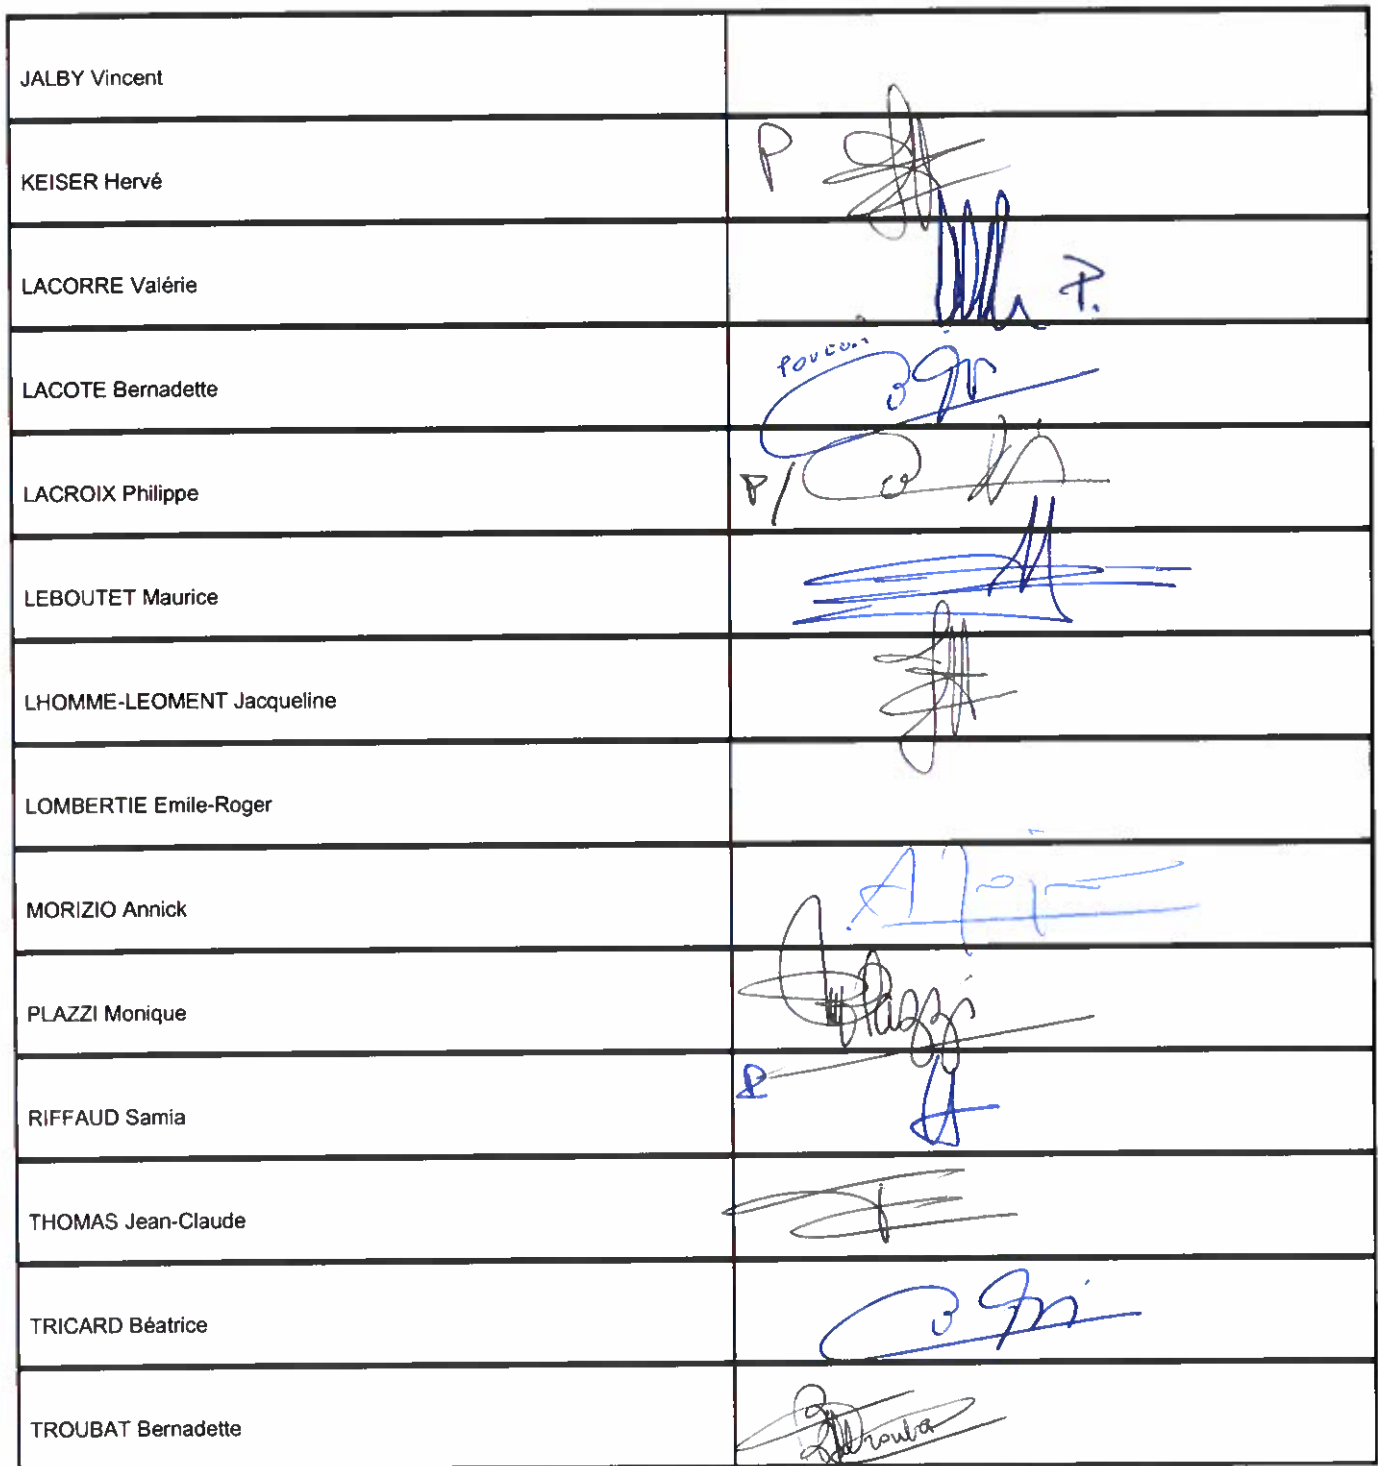 JALBY Vincent
KEISER Hervé
P
LACORRE Valérie
P.
LACOTE Bernadette
LACROIX Philippe
P/
LEBOUTET Maurice
LHOMME-LEOMENT Jacqueline
LOMBERTIE Emile-Roger
MORIZIO Annick
PLAZZI Monique
Plazzi
RIFFAUD Samia
P
THOMAS Jean-Claude
TRICARD Béatrice
TROUBAT Bernadette